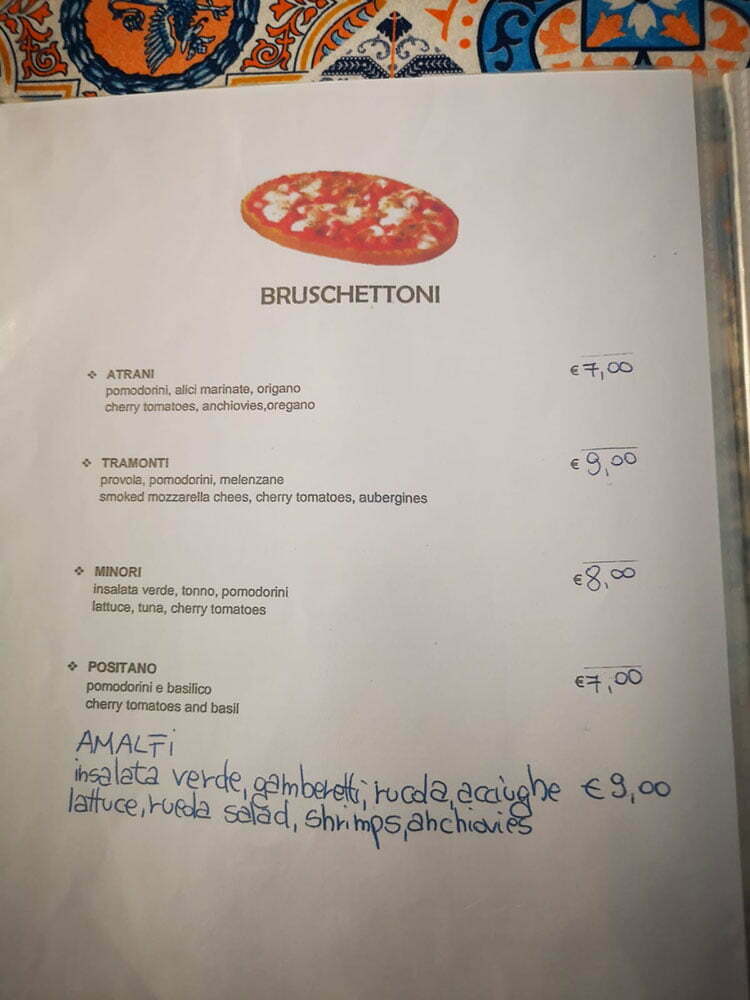 BRUSCHETTONI
❖ ATRANI
pomodorini, alici marinate, origano
cherry tomatoes, anchiovies,oregano
€ 7,00
❖ TRAMONTI
provola, pomodorini, melenzane
smoked mozzarella chees, cherry tomatoes, aubergines
€ 9,00
❖ MINORI
insalata verde, tonno, pomodorini
lattuce, tuna, cherry tomatoes
€ 8,00
❖ POSITANO
pomodorini e basilico
cherry tomatoes and basil
€ 7,00
AMALFi
insalata verde, gamberetti, rucola, acciughe € 9,00
lattuce, rucola salad, shrimps, anchiovies